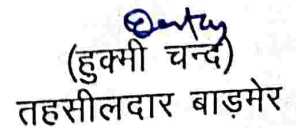 (हुक्मी चन्द)
तहसीलदार बाड़मेर